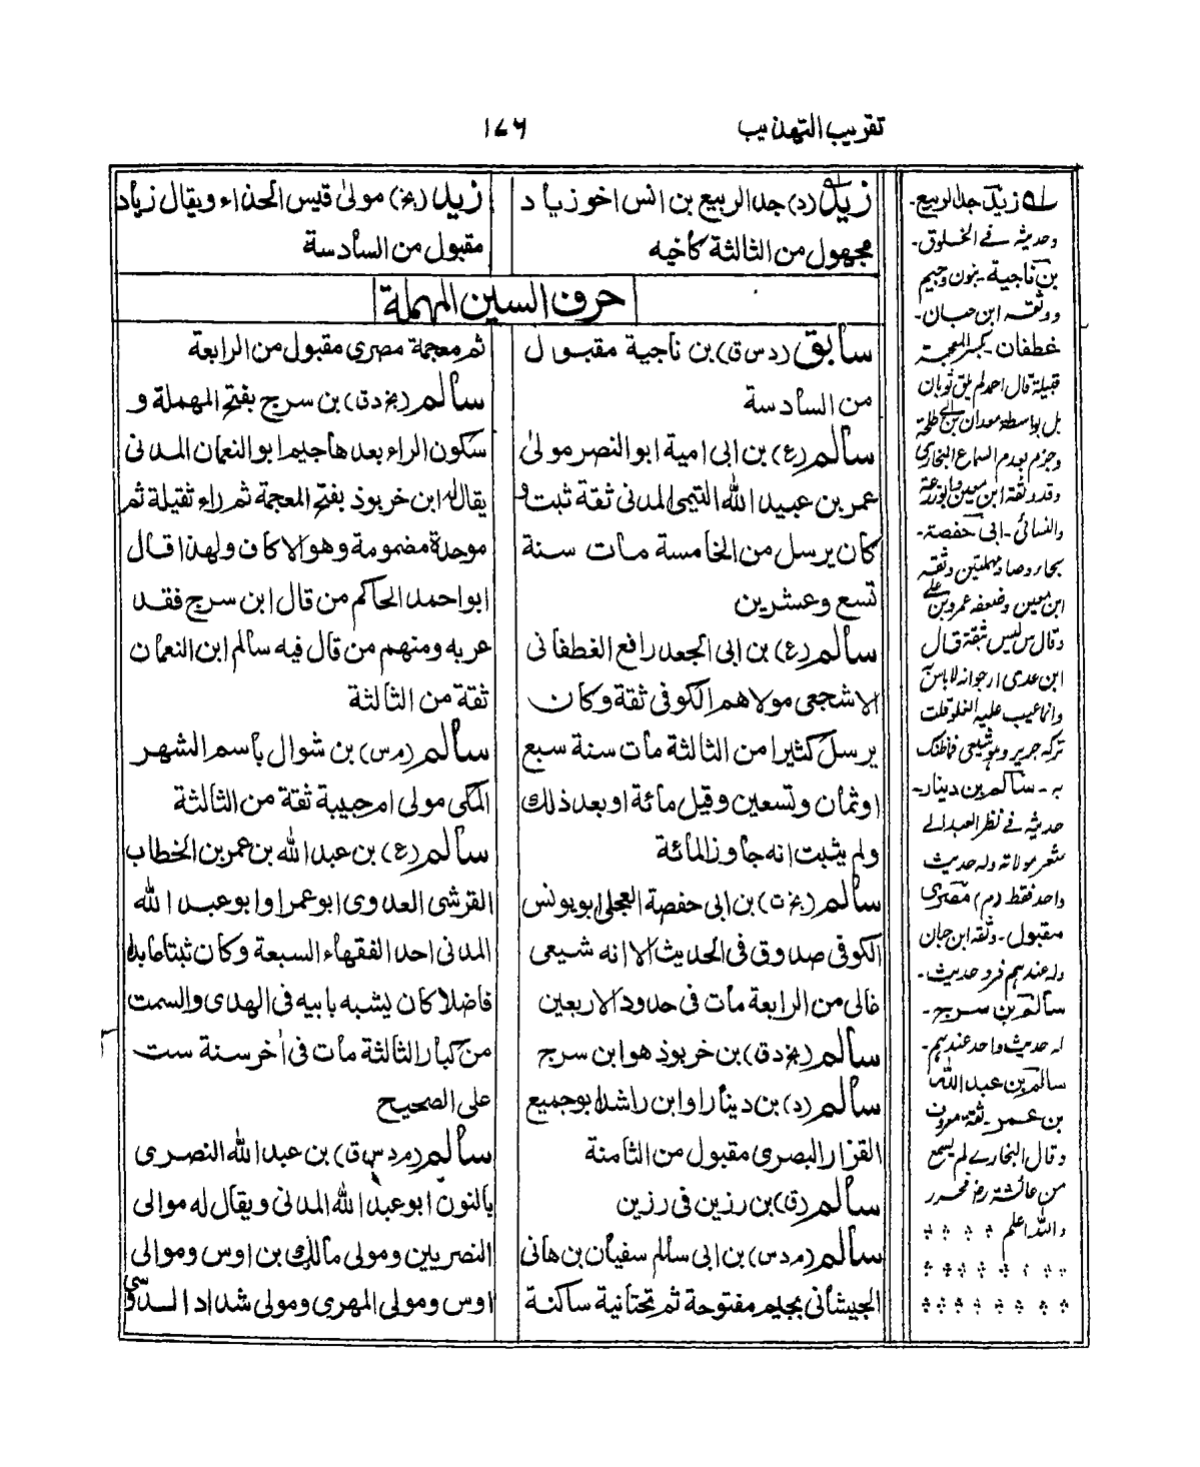 تقریب التهذیب
۱۷۶
زيد (د) جد الربيع بن انس اخو زياد
مجهول من الثالثة كاخيه
زيد (بخ) مولى قيس الحذاء ويقال زياد
مقبول من السادسة
حرف السين المهملة
سابق (د س ق) بن ناجية مقبول
من السادسة
سالم (ع) بن ابى امية ابو النضر مولى
عمر بن عبيد الله التيمى المدنى ثقة ثبت و
كان يرسل من الخامسة مات سنة
تسع وعشرين
سالم (ع) بن ابى الجعد رافع الغطفانى
الاشجعى مولاهم الكوفى ثقة وكان
يرسل كثيرا من الثالثة مات سنة سبع
او ثمان وتسعين وقيل مائة او بعد ذلك
ولم يثبت انه جاوز المائة
سالم (بخ ت) بن ابى حفصة العجلى ابو يونس
الكوفى صدوق فى الحديث الا انه شيعى
غالى من الرابعة مات فى حدود الاربعين
سالم (بخ د ق) بن خربوذ هو ابن سرج
سالم (د) بن دينار او ابن راشد ابو جميع
القزاز البصرى مقبول من الثامنة
سالم (ق) بن رزين فى رزين
سالم (م د س) بن ابى سالم سفيان بن هانى
الجيشانى بجيم مفتوحة ثم تحتانية ساكنة
ثم معجمة مصرى مقبول من الرابعة
سالم (بخ د ق) بن سرج بفتح المهملة و
سكون الراء بعدها جيم ابو النعمان المدنى
يقال له ابن خربوذ بفتح المعجمة ثم راء ثقيلة ثم
موحدة مضمومة وهو الاكاف ولهذا قال
ابو احمد الحاكم من قال ابن سرج فقد
عربه ومنهم من قال فيه سالم ابن النعمان
ثقة من الثالثة
سالم (م س) بن شوال باسم الشهر
المكى مولى ام حبيبة ثقة من الثالثة
سالم (ع) بن عبد الله بن عمر بن الخطاب
القرشى العدوى ابو عمر او ابو عبد الله
المدنى احد الفقهاء السبعة وكان ثبتا عابدا
فاضلا كان يشبه بابيه فى الهدى والسمت
من كبار الثالثة مات فى اخر سنة ست
على الصحيح
سالم (م د س ق) بن عبد الله النصرى
بالنون ابو عبد الله المدنى ويقال له مولى
النصريين ومولى مالك بن اوس ومولى
اوس ومولى المهرى ومولى شداد الدوسى
له زيد جد الربيع-
وحديثه فے الخلوق-
بن ناجية- بنون وجيم
ووثقه ابن حبان-
غطفان-
قبيلة قال احمد لم يلق ثوبان
بل بواسطة معدان بن ابى طلحة
وجزم بعدم السماع البخارى
وقد وثقه ابن معين وابو زرعة
والنسائى- ابى حفصة-
بحاء وصاد مهملتين وثقه
ابن معين وضعفه عمرو بن على
وقال س ليس ثقة قال
ابن عدى ارجو انه لا باس
وانما عيب عليه الغلو قلت
تركه جرير وهو شيعى فما ظنك
به- سالم بن دينار-
حديثه فے نظر العبد الے
شعر مولاته وله حديث
واحد فقط (م) مصرى
مقبول- وثقه ابن حبان
وله عندهم فرد حديث-
سالم بن سرج-
له حديث واحد عندهم-
سالم بن عبد الله
بن عمر- ثقة معروف
وقال البخارے لم يسمع
من عائشة رض فحرر
والله اعلم